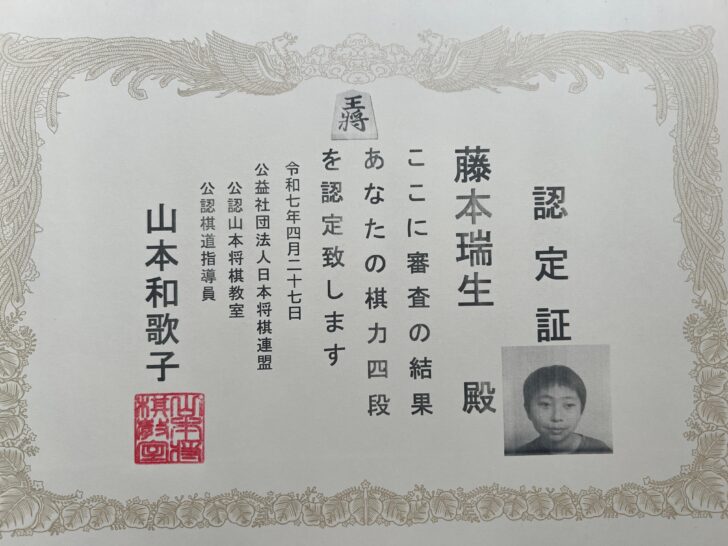 認定証
藤本瑞生 殿
ここに審査の結果
あなたの棋力四段
を認定致します
王将
令和七年四月二十七日
公益社団法人日本将棋連盟
公認山本将棋教室
公認棋道指導員
山本和歌子
山本将棋教室